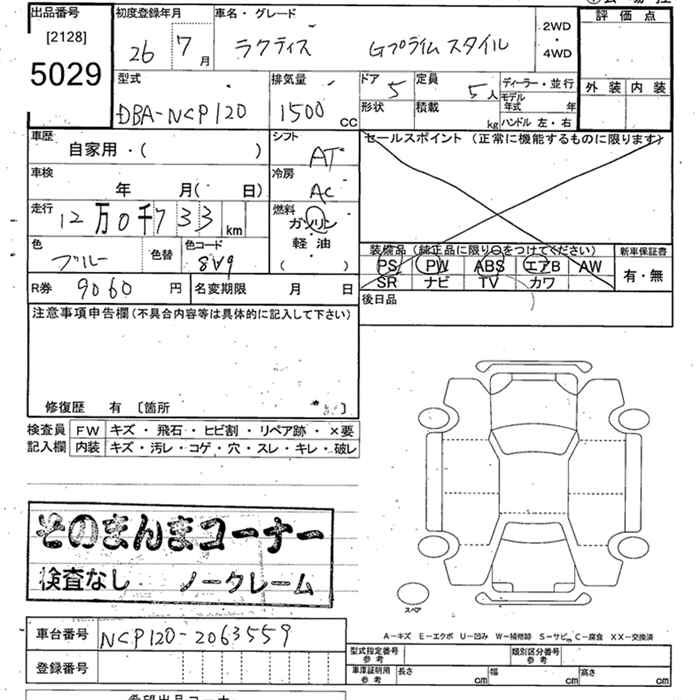 出品番号
[2128]
5029
初度登録年月
26 7月
車名・グレード
ラクティス Gプライムスタイル
2WD
・
4WD
評価点
外装 内装
型式
DBA-NCP120
排気量
1500 CC
ドア 5
形状
定員 5人
積載 kg
ディーラー・並行
モデル年式 年
ハンドル 左・右
車歴
自家用・( )
シフト
AT
セールスポイント (正常に機能するものに限ります)
車検
年 月(・ 日)
冷房
AC
走行
12万0千733 km
燃料
ガソリン
軽油
( )
色
ブルー
色替
色コード
8V9
装備品(純正品に限り○をつけてください)
PS PW ABS エアB AW
SR ナビ TV カワ
新車保証書
有・無
R券 9060 円
名変期限 月 日
後日品
注意事項申告欄(不具合内容等は具体的に記入して下さい)
修復歴 有 〔箇所 〕
検査員記入欄
FW キズ・飛石・ヒビ割・リペア跡・×要
内装 キズ・汚レ・コゲ・穴・スレ・キレ・破レ
そのまんまコーナー
検査なし ノークレーム
スペア
A−キズ E−エクボ U−凹み W−補修跡 S−サビ C−腐食 XX−交換済
車台番号 NCP120-2063559
登録番号
型式指定番号
参考
類別区分番号
参考
車庫証明用
参考
長さ cm 幅 cm 高さ cm
希望出品コーナー